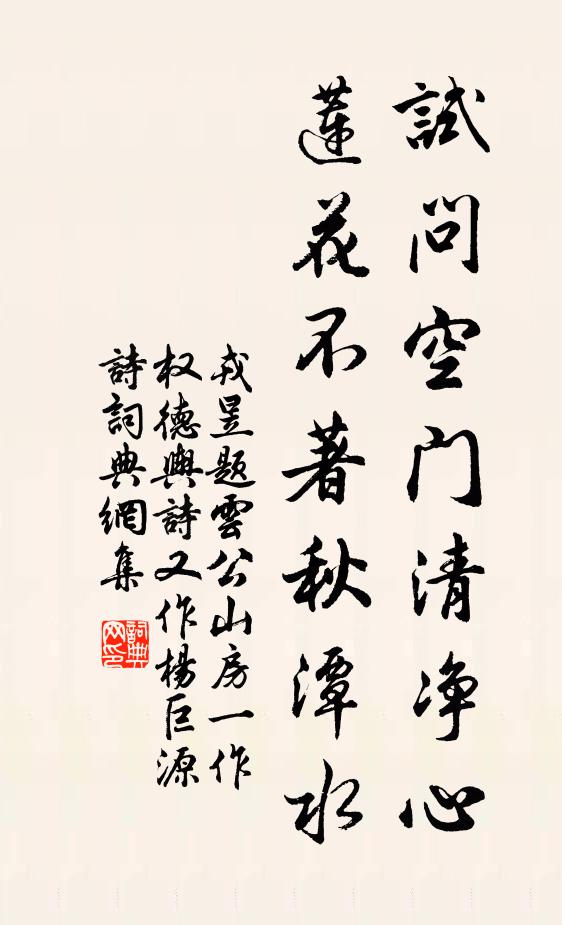 試問空門清净心
蓮花不著秋潭水
戎昱題雲公山房一作
权德輿詩又作楊巨源
詩詞典網集
詞典网印